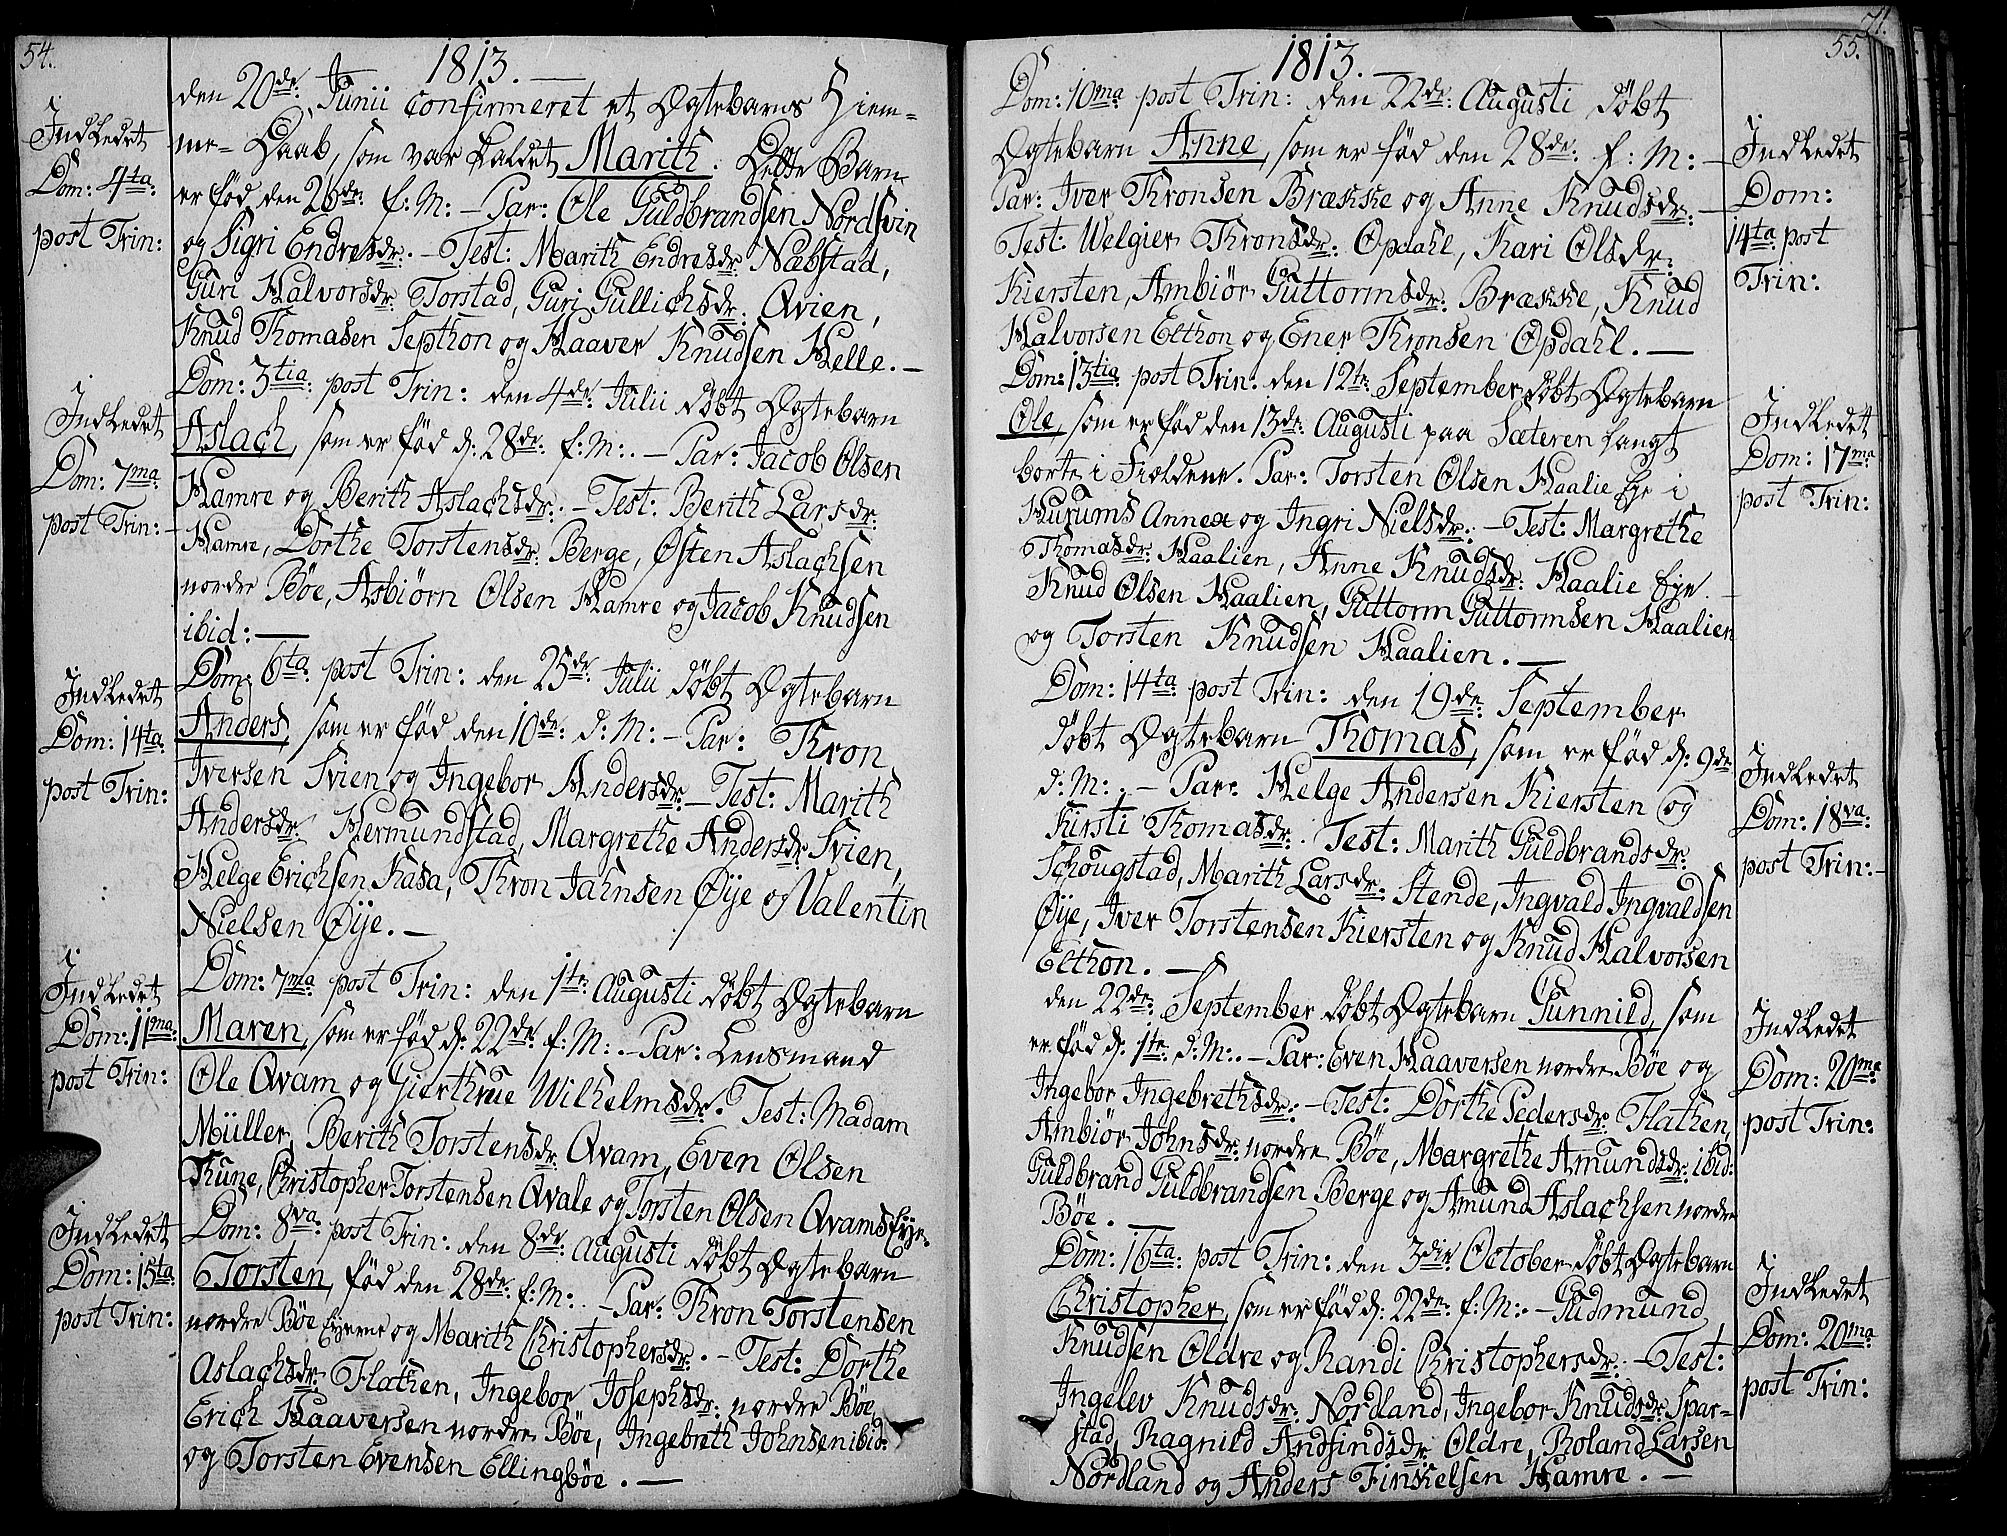 54.
1813.
den 20de Junii confirmeret et Ægtebarns Hiem-
me-Daab, som var kaldet Marith. Dette Barn
er fød den 26de f: M: - Par: Ole Guldbrandsen Nordsvin
og Sigri Endresdr: - Test: Marith Endresdr: Næbstad,
Guri Halvorsdr: Torstad, Guri Gullichsdr: Qvien,
Knud Thomasen Septhon og Haaver Knudsen Helle. -
Indledet
Dom: 4ta
post Trin:
Dom: 3tia post Trin: den 4de Julii døbt Ægtebarn
Aslach, som er fød d: 28de f: M: - Par: Jacob Olsen
Hamre og Berith Aslachsdr: - Test: Berith Larsdr:
Hamre, Dorthe Torstensdr: Berge, Østen Aslachsen
nordre Bøe, Asbiørn Olsen Hamre og Jacob Knudsen
ibid: -
Indledet
Dom: 7ma
post Trin:
Dom: 6ta post Trin: den 25de Julii døbt Ægtebarn
Anders, som er fød den 10de d: M: - Par: Thron
Iversen Svien og Ingebor Andersdr: - Test: Marith
Andersdr: Hermundstad, Margrethe Andersdr: Svien,
Helge Erichsen Kasa, Thron Jahnsen Øije og Valentin
Nielsen Øije. -
Indledet
Dom: 14ta
post Trin:
Dom: 7ma post Trin: den 1te Augusti døbt Ægtebarn
Maren, som er fød d: 22de f: M: - Par: Lensmand
Ole Qvam og Gierthrue Wilhelmsdr: Test: Madam
Müller, Berith Torstensdr: Qvam, Even Olsen
Thune, Christopher Torstensen Qvale og Torsten Olsen Qvams Eye.
Indledet
Dom: 11ma
post Trin:
Dom: 8va post Trin: den 8de Augusti døbt Ægtebarn
Torsten, fød den 28de f: M: - Par: Thron Torstensen
nordre Bøe Eyerne og Marith Christophersdr: - Test: Dorthe
Aslachsdr: Flathen, Ingebor Josephsdr: nordre Bøe,
Erich Haaversen nordre Bøe, Ingebreth Johnsen ibid:
og Torsten Evensen Ellingbøe. -
Indledet
Dom: 15ta
post Trin:
71.
55.
1813.
Dom: 10ma post Trin: den 22de Augusti døbt
Ægtebarn Anne, som er fød den 28de f: M: -
Par: Iver Thronsen Brække og Anne Knudsdr: -
Test: Welgier Thronsdr: Opdahl, Kari Olsdr:
Kiersten, Ambiør Guttormsdr: Brække, Knud
Halvorsen Elthon og Ener Thronsen Opdahl. -
Indledet
Dom:
14ta post
Trin:
Dom: 13tia post Trin: den 12te September døbt Ægtebarn
Ole, som er fød den 13de Augusti paa Sæteren langt
borte i Fieldene. Par: Torsten Olsen Haalie Eye i
Hurums Annex og Ingri Nielsdr: - Test: Margrethe
Thomasdr: Haalien, Anne Knudsdr: Haalie Eye.
Knud Olsen Haalien, Guttorm Guttormsen Haalien
og Torsten Knudsen Haalien. -
Indledet
Dom: 17ma
post Trin:
Dom: 14ta post Trin: den 19de September
døbt Ægtebarn Thomas, som er fød d: 9de
d: M: - Par: Helge Andersen Kiersten og
Kirsti Thomasdr: Test: Marith Guldbrandsdr:
Schougstad, Marith Larsdr: Stende, Ingvald Ingvaldsen
Øije, Iver Torstensen Kiersten og Knud Halvorsen
Elthon. -
Indledet
Dom: 18va
post Trin: -
den 22de September døbt Ægtebarn Gunnild, som
er fød d: 1te d: M: - Par: Even Haaversen nordre Bøe og
Ingebor Ingebrethsdr: - Test: Dorthe Pedersdr: Flathen,
Ambiør Johnsdr: nordre Bøe, Margrethe Amundsdr: ibid:
Guldbrand Guldbrandsen Berge og Amund Aslachsen nordre
Bøe. -
Indledet
Dom: 20ma
post Trin:
Dom: 16ta post Trin: den 3die October døbt Ægtebarn
Christopher, som er fød d: 22de f: M: - Gudmund
Knudsen Oldre og Randi Christophersdr: - Test:
Ingelev Knudsdr: Nordland, Ingebor Knudsdr: Spar-
stad, Ragnild Andfindsdr: Oldre, Roland Larsen
Nordland og Anders Finkelsen Hamre. -
Indledet
Dom: 20ma
post Trin: